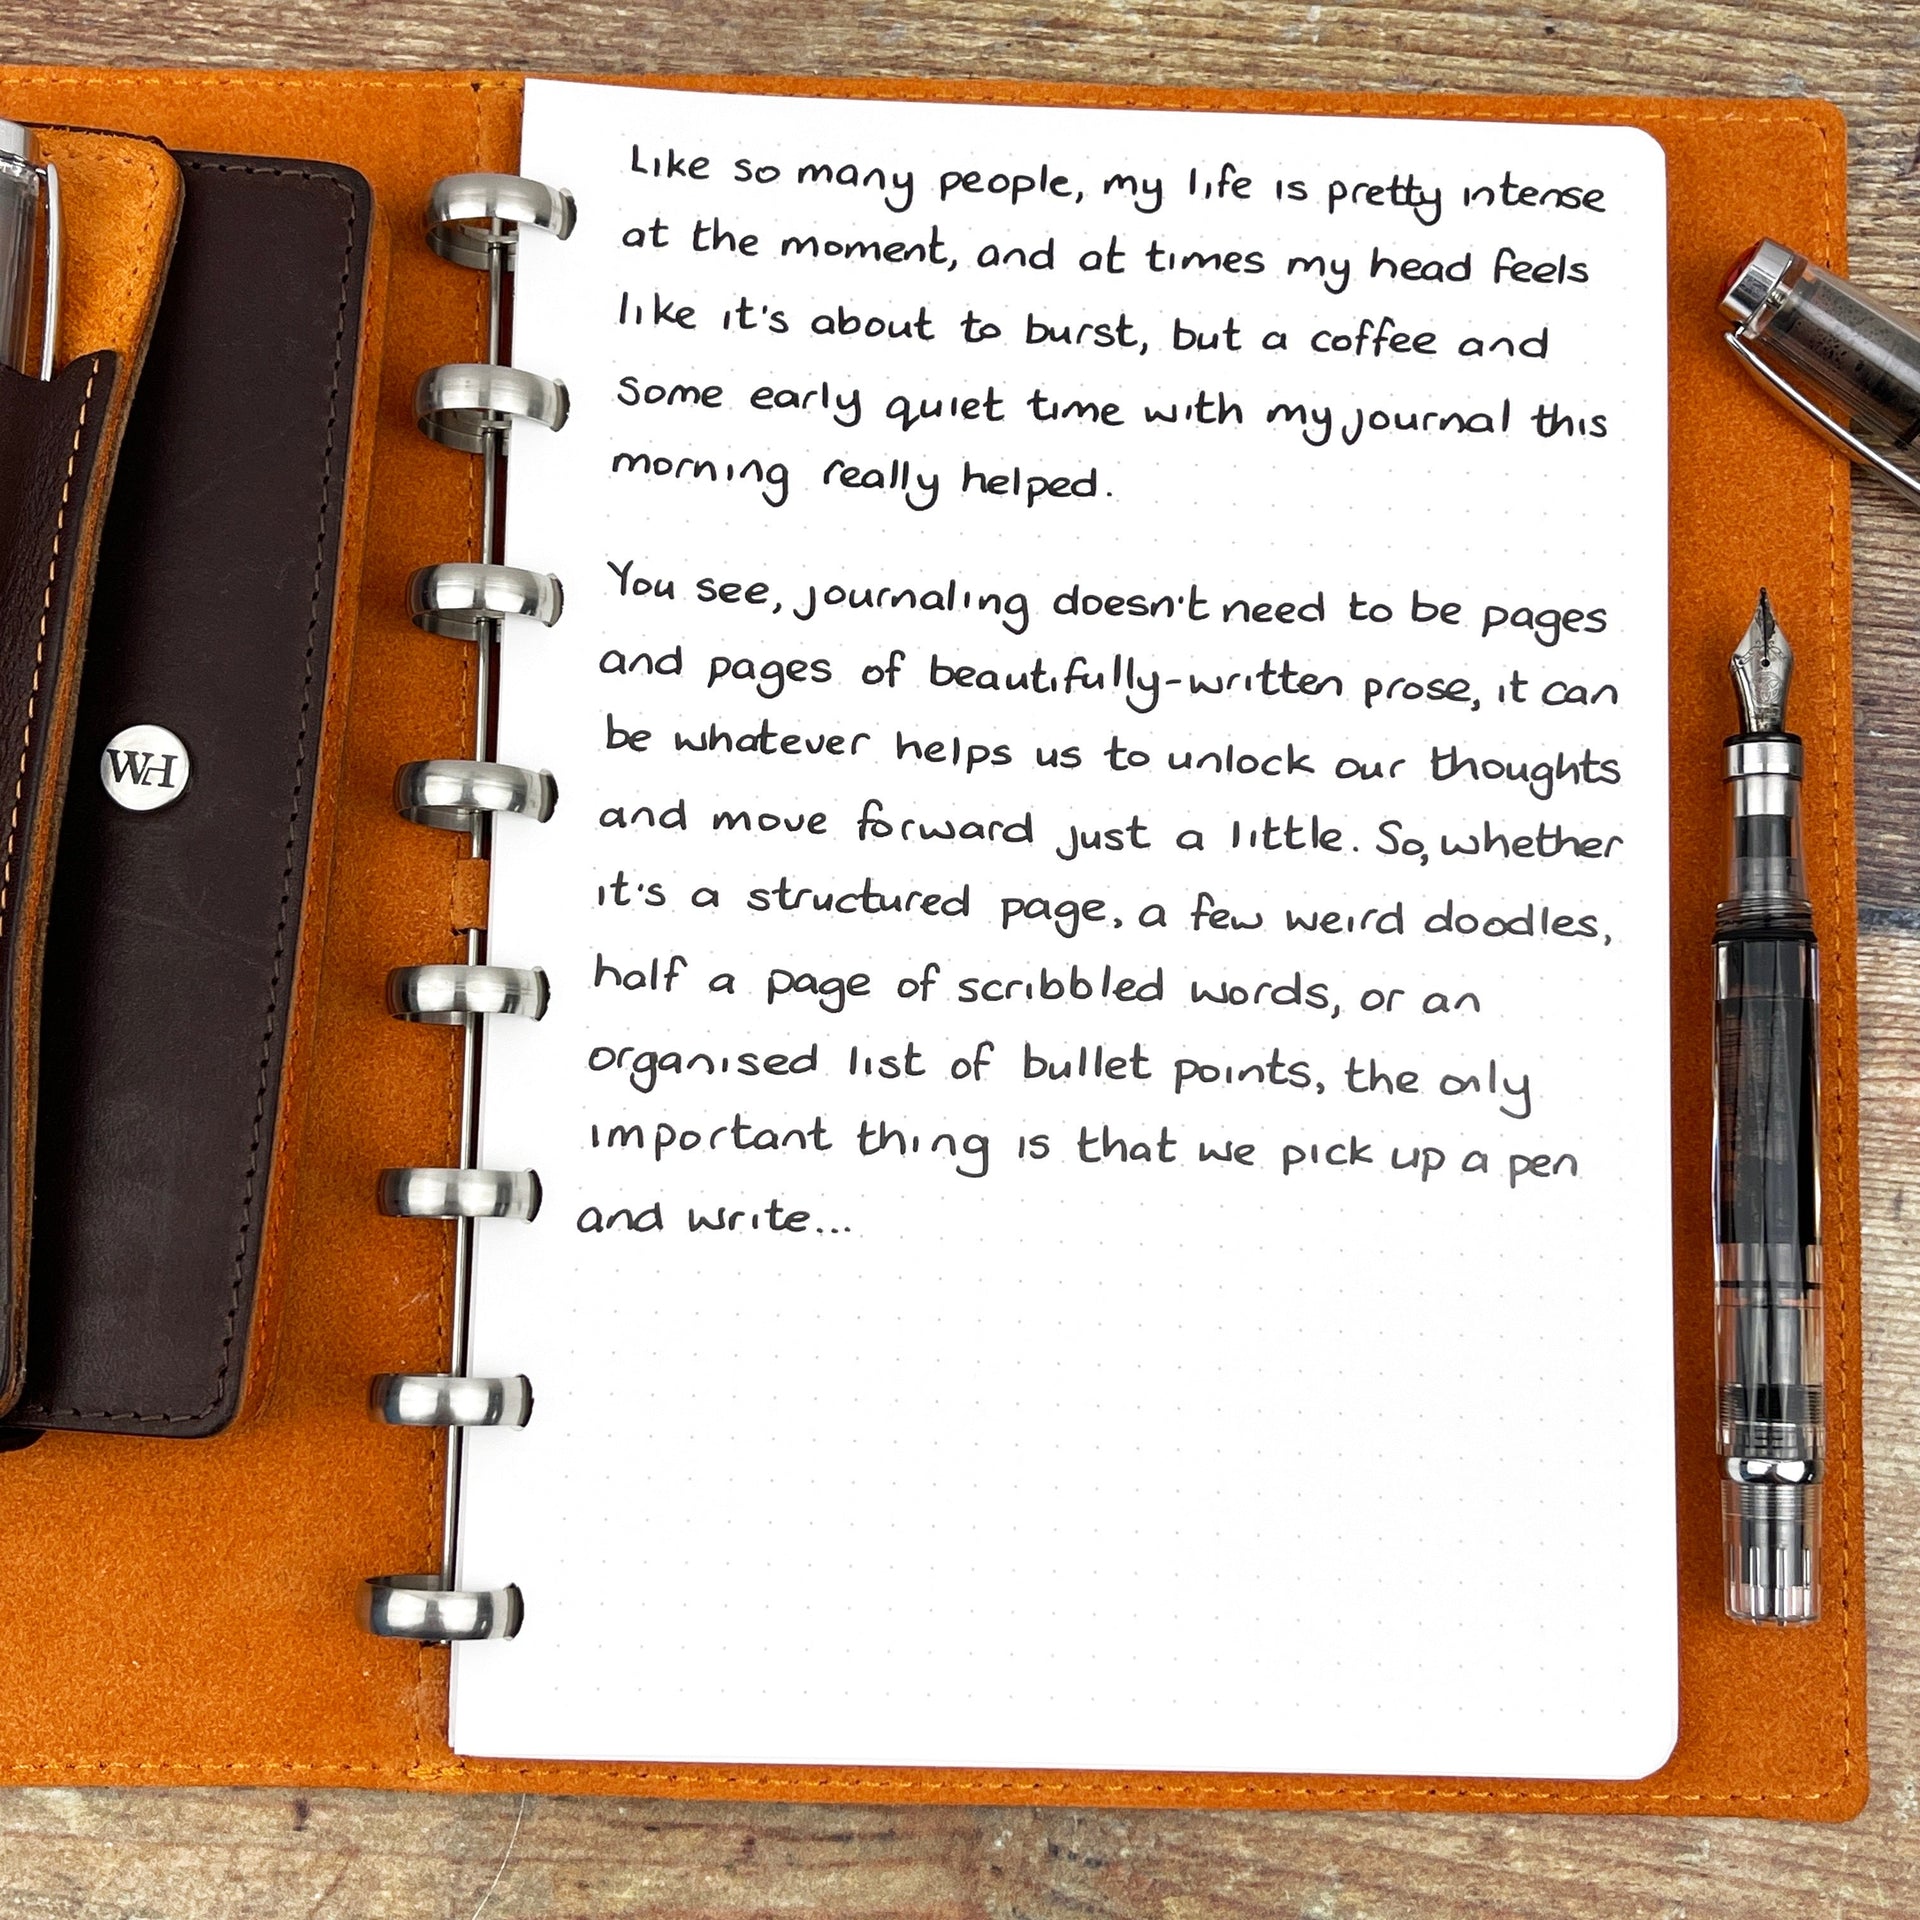 WH
Like so many people, my life is pretty intense
at the moment, and at times my head feels
like it's about to burst, but a coffee and
some early quiet time with my journal this
morning really helped.
You see, journaling doesn't need to be pages
and pages of beautifully-written prose, it can
be whatever helps us to unlock our thoughts
and move forward just a little. So, whether
it's a structured page, a few weird doodles,
half a page of scribbled words, or an
organised list of bullet points, the only
important thing is that we pick up a pen
and write...